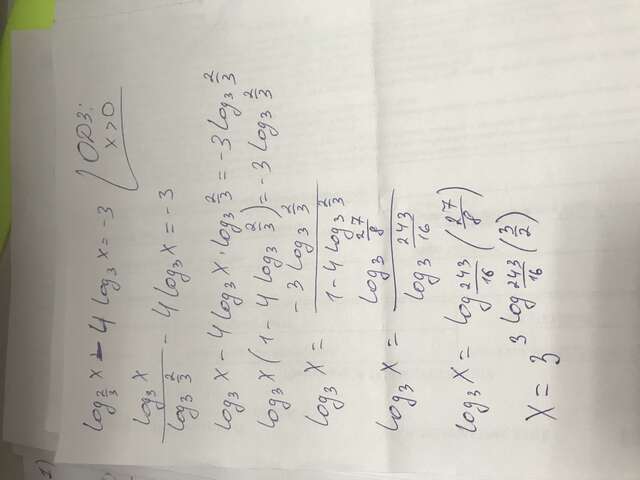 log_{2/3} x - 4 log_3 x = -3 (ОДЗ: x > 0
\frac{log_3 x}{log_3 \frac{2}{3}} - 4 log_3 x = -3
log_3 x - 4 log_3 x · log_3 \frac{2}{3} = -3 log_3 \frac{2}{3}
log_3 x (1 - 4 log_3 \frac{2}{3}) = -3 log_3 \frac{2}{3}
log_3 x = \frac{-3 log_3 \frac{2}{3}}{1 - 4 log_3 \frac{2}{3}}
log_3 x = \frac{log_3 \frac{27}{8}}{log_3 \frac{243}{16}}
log_3 x = log_{\frac{243}{16}} (\frac{27}{8})
x = 3^{3 log_{\frac{243}{16}} (\frac{3}{2})}